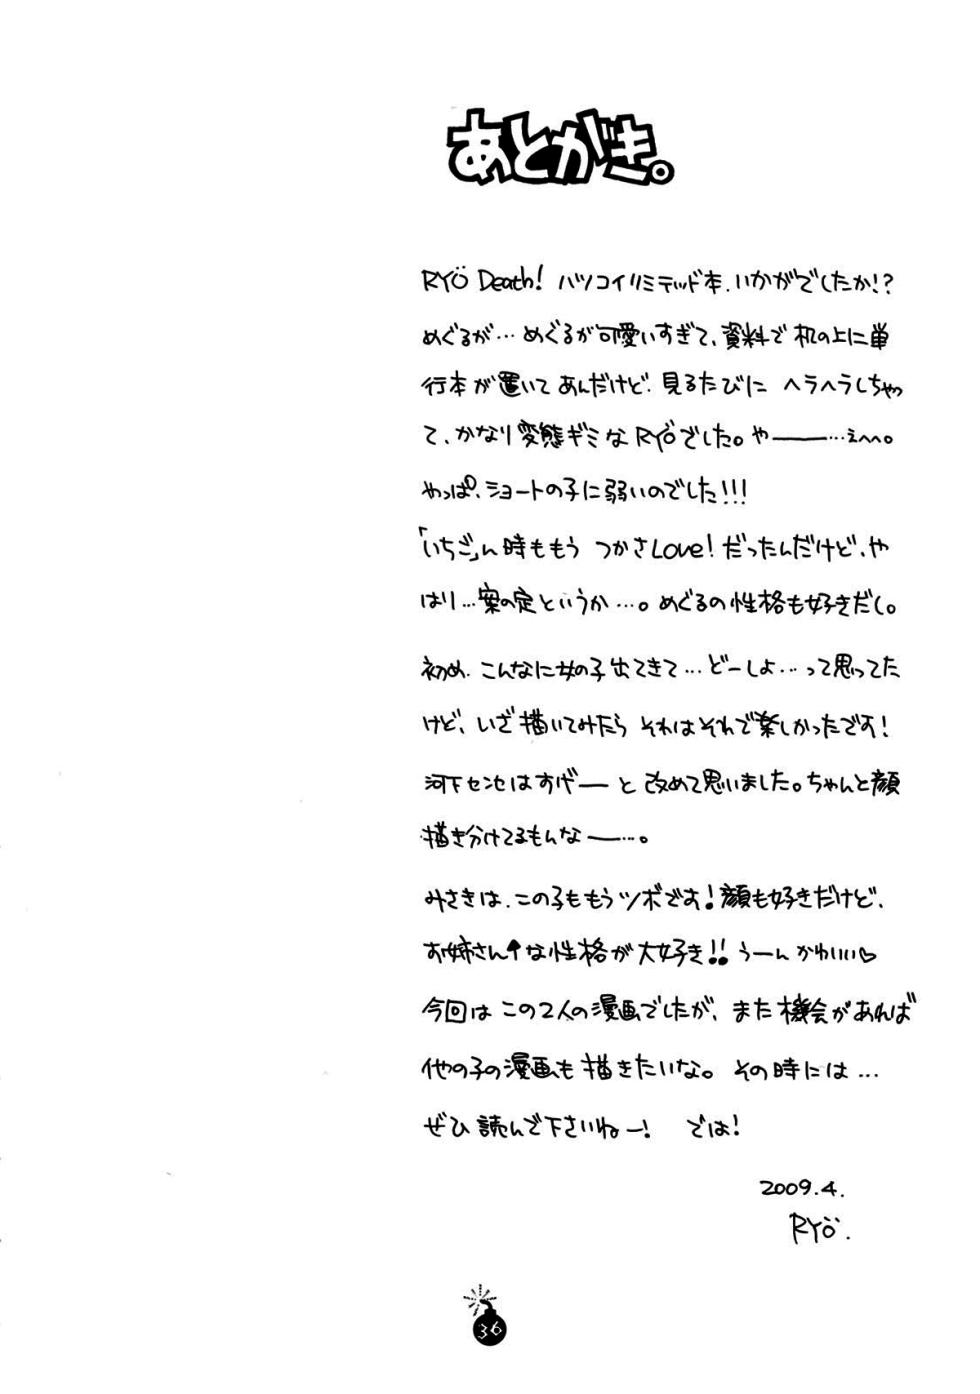 あとがき。
RYÖ Death! ハツコイリミテッド本、いかがでしたか!?
めぐるが…めぐるが可愛いすぎて、資料で机の上に単
行本が置いてあんだけど、見るたびに ヘラヘラしちゃっ
て、かなり変態ギミなRYÖでした。や———…ぇへへ。
やっぱ、ショートの子に弱いのでした!!!
「いちご」ん時ももう つかさLove! だったんだけど、や
はり…案の定というか…。めぐるの性格も好きだし。
初め、こんなに女の子出てきて…どーしよ…って思ってた
けど、いざ描いてみたら それはそれで楽しかったです!
河下センセはすげーと 改めて思いました。ちゃんと顔
描き分けてるもんなー…。
みさきは、この子ももうツボです!顔も好きだけど、
お姉さん↑な性格が大好き!! うーんかわいい♡
今回は この2人の漫画でしたが、また機会があれば
他の子の漫画も描きたいな。その時には…
ぜひ 読んで下さいねー! では!
2009.4.
RYÖ.
36